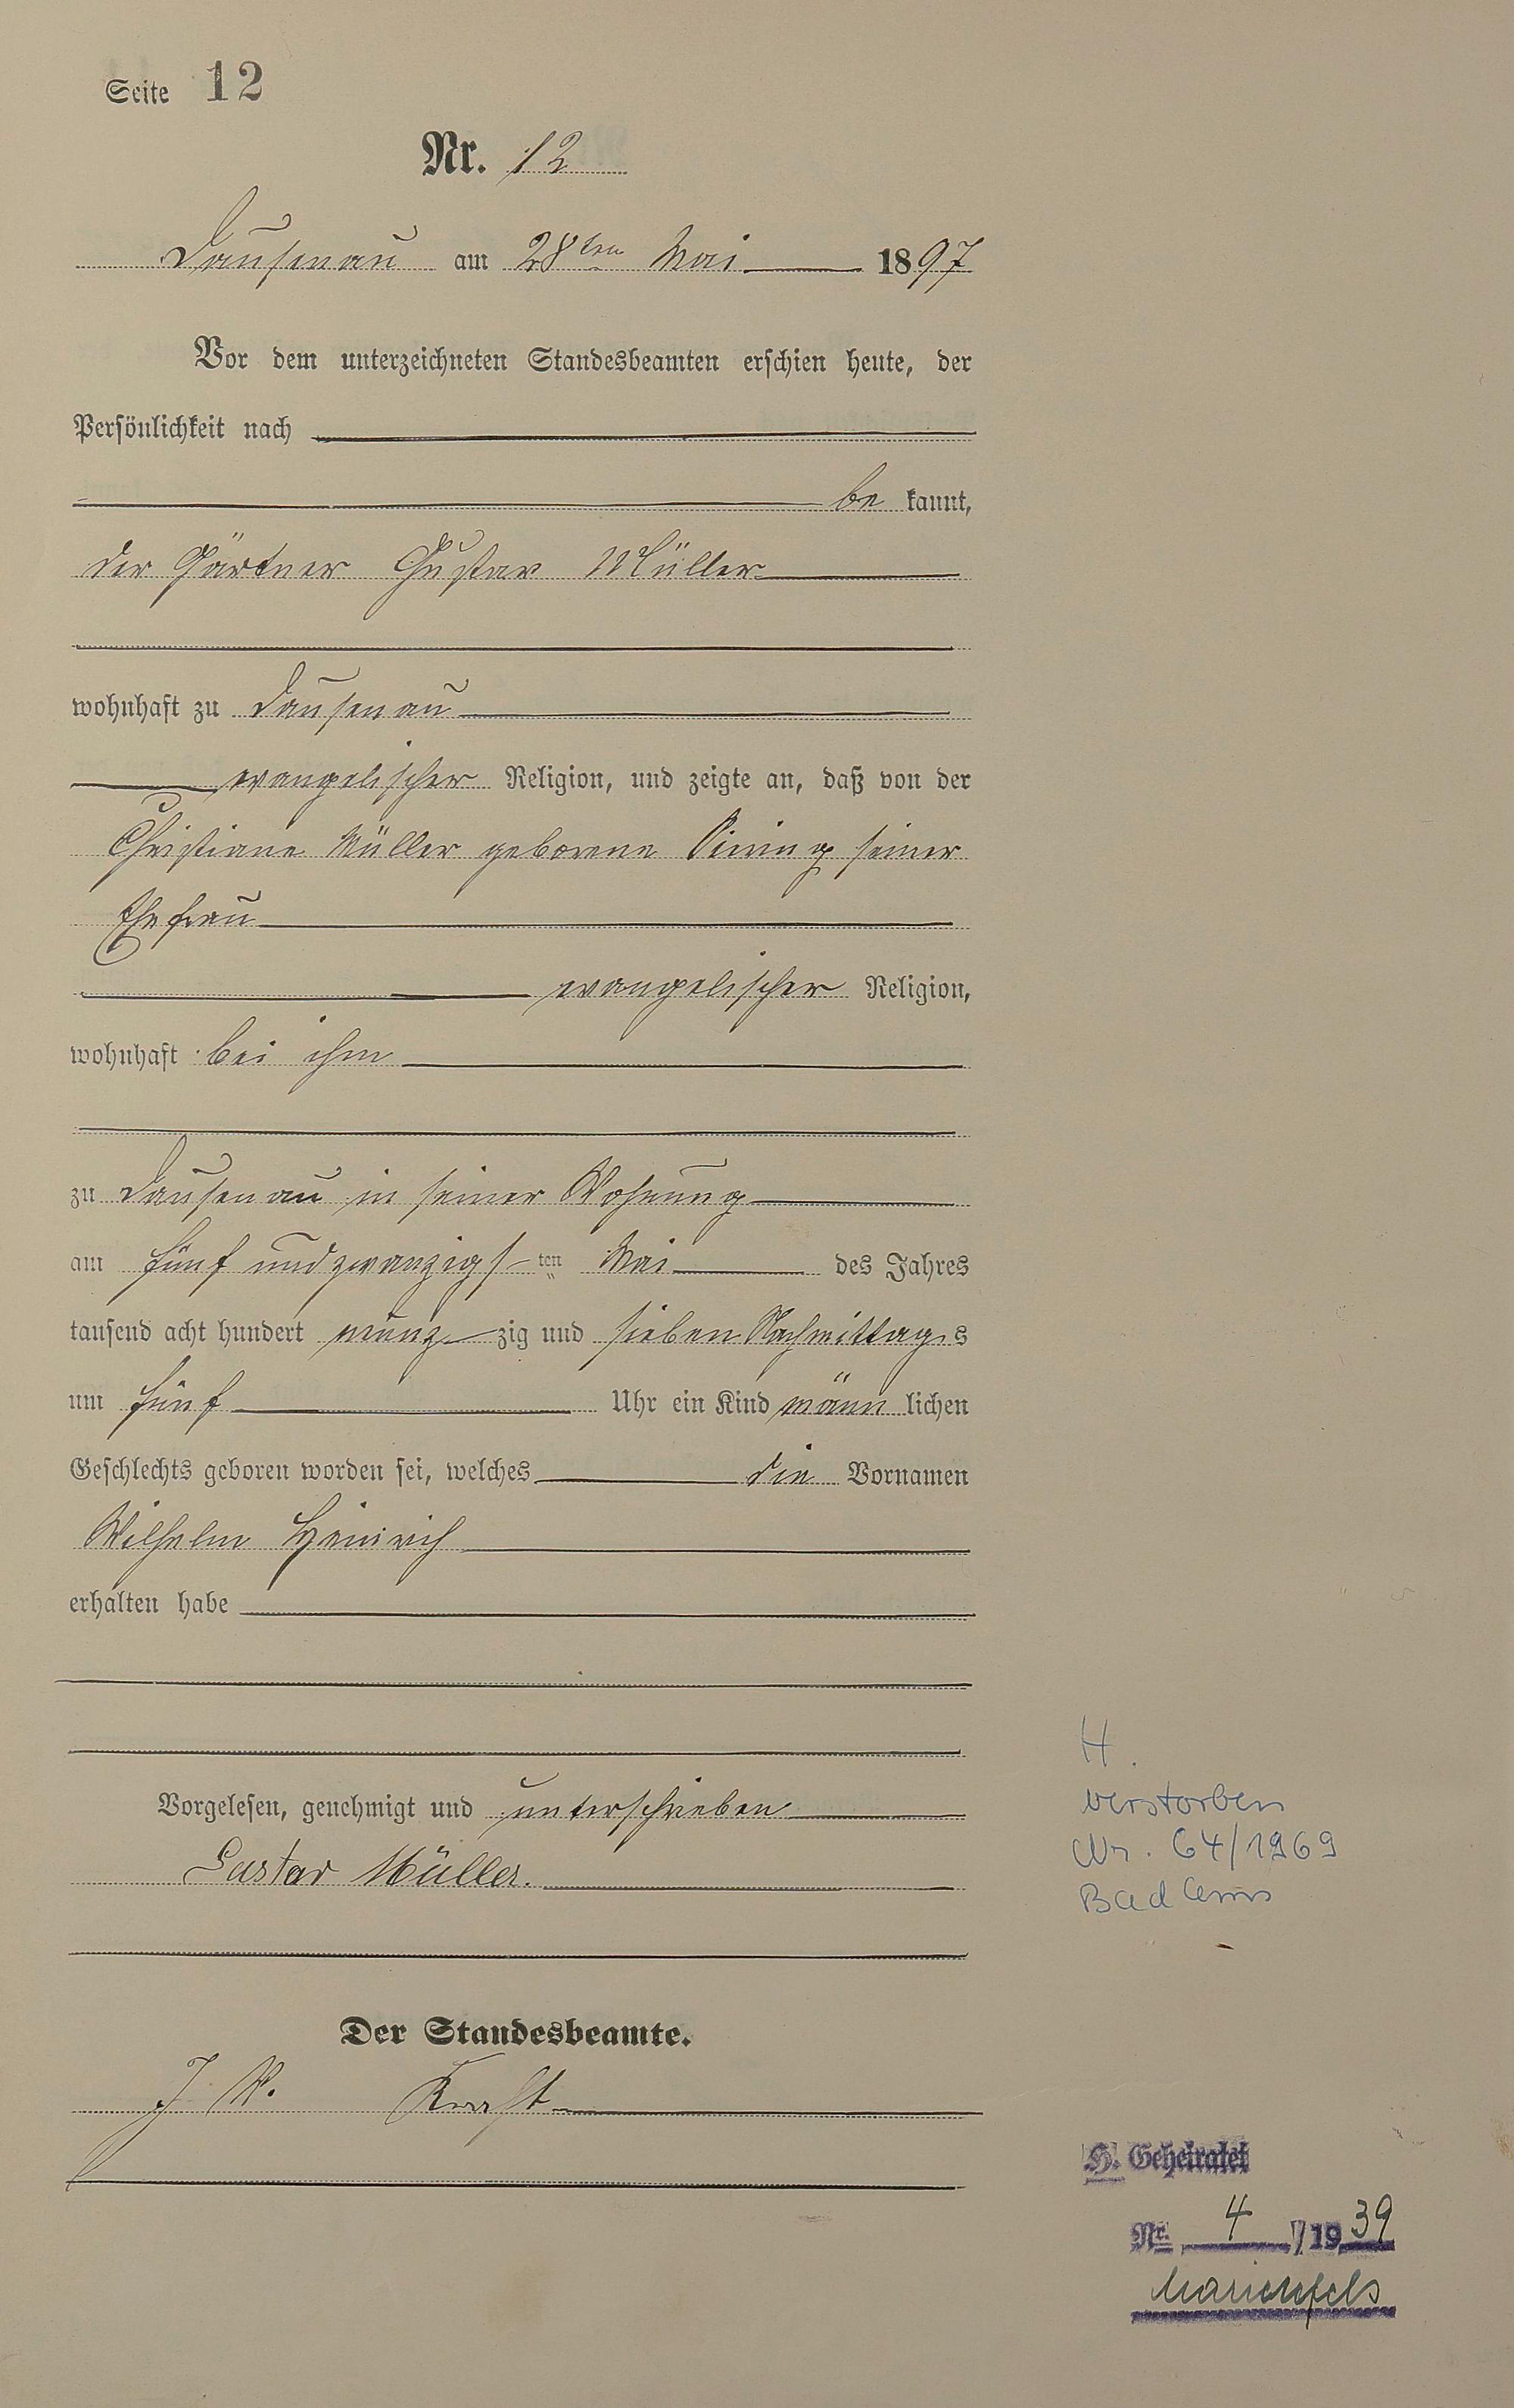 Seite 12
Nr. 12
Dausenau am 28ten Mai 1897
Vor dem unterzeichneten Standesbeamten erschien heute, der
Persönlichkeit nach
be kannt,
der Gärtner Gustav Müller
wohnhaft zu Dausenau
evangelischer Religion, und zeigte an, daß von der
Christiane Müller geborene seiner
Ehefrau
evangelischer Religion,
wohnhaft bei ihm
zu Dausenau in seiner Wohnung
am fünf und zwanzigs ten Mai des Jahres
tausend acht hundert neunzig und sieben Nachmittags
um fünf Uhr ein Kind männlichen
Geschlechts geboren worden sei, welches die Vornamen
Wilhelm Heinrich
erhalten habe
Vorgelesen, genehmigt und unterschrieben
Gustav Müller.
Der Standesbeamte.
J. V. Kraft
H.
verstorben
Nr. 64/1969
Bad Ems
H. Geheiratet
Nr. 4/1939
Marienfels